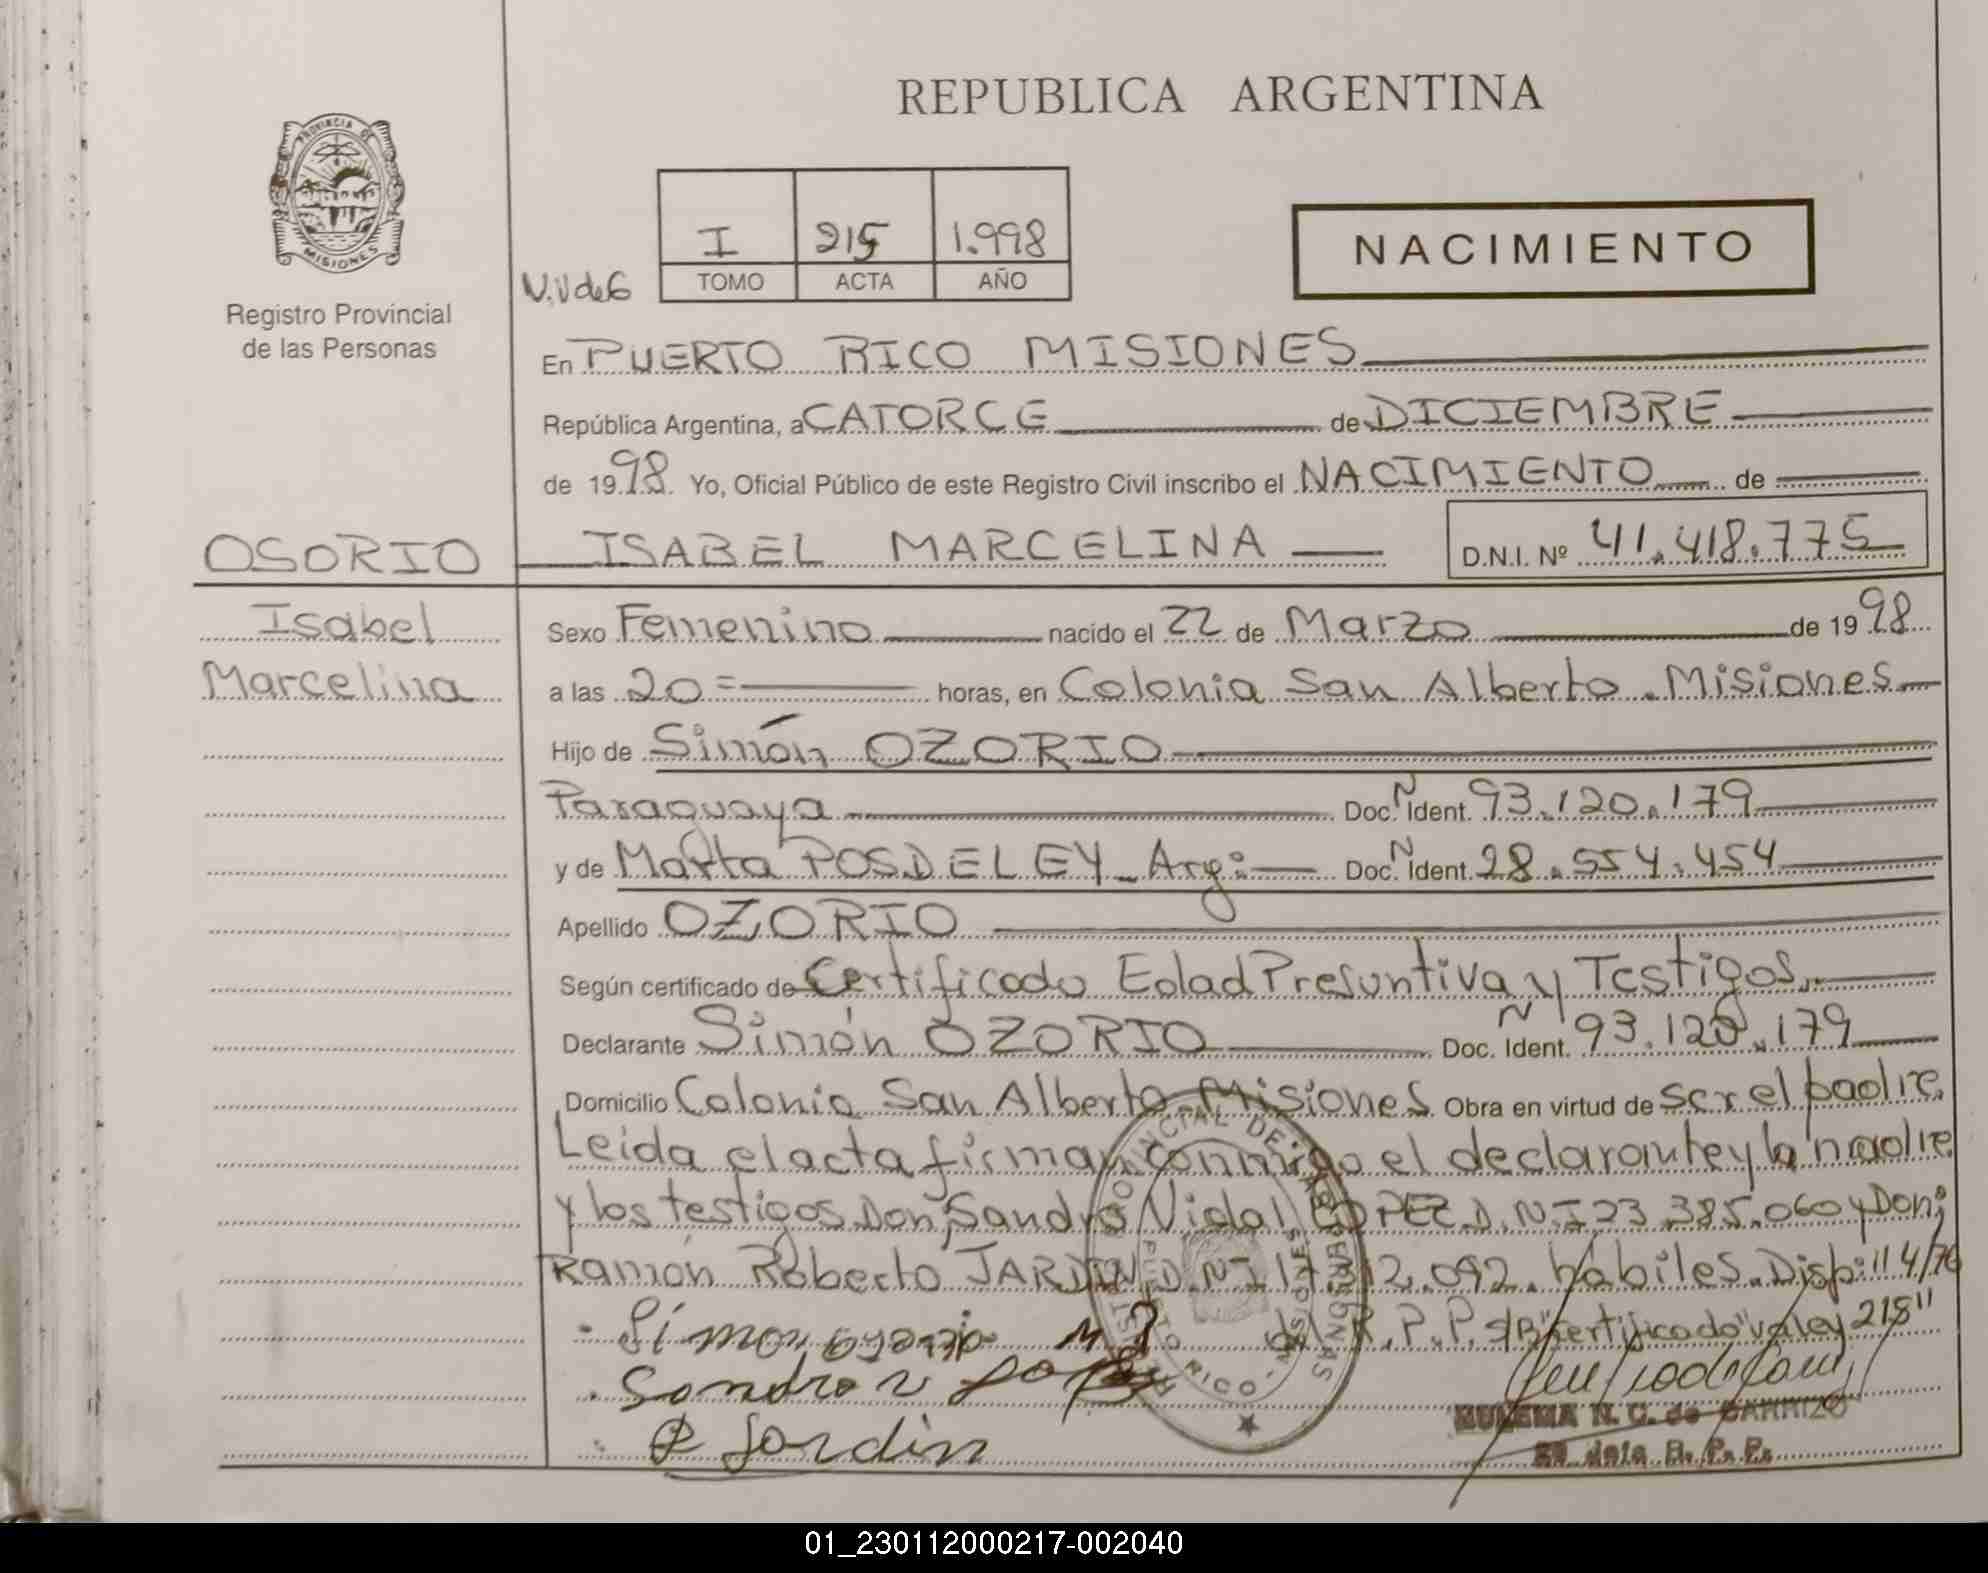 REPUBLICA ARGENTINA
PROVINCIA DE
MISIONES
Registro Provincial
de las Personas
I 215 1.998
TOMO ACTA AÑO
N.V de G
NACIMIENTO
En PUERTO RICO MISIONES
República Argentina, a CATORCE de DICIEMBRE
de 19 98. Yo, Oficial Público de este Registro Civil inscribo el NACIMIENTO de
OSORIO ISABEL MARCELINA D.N.I. Nº 41.418.775
Isabel Sexo Femenino nacido el 22 de Marzo de 19 98
Marcelina a las 20= horas, en Colonia San Alberto. Misiones
Hijo de Simón OZORIO
Paraguaya Doc. N Ident. 93.120.179
y de Marta POSDELEY - Arg: Doc. N Ident. 28.554.454
Apellido OZORIO
Según certificado de Certificado Edad Presuntiva y Testigos
Declarante Simón OZORIO Doc. N Ident. 93.120.179
Domicilio Colonia San Alberto Misiones Obra en virtud de ser el padre.
Leida el acta firman conmigo el declarante y la madre
y los testigos Don Sandro Vidal LOPEZ D.N.I 23.385.060 y Don
Ramón Roberto JARDIN D.N.I habiles. Disp: 114/76
del R.P.P. S/B "certificado" vale y 215"
Simon ozorio
Sandro v
R Jardin
N. C. de CARRIZO
R. P. P.
PUERTO RICO - MISIONES
01_230112000217-002040